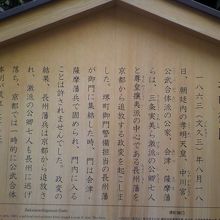 一八六三(文久三)年八月十八
日、朝廷内の孝明天皇、中川宮、
公武合体派の公家、会津・薩摩藩
らは、三条実美ら激派の公卿七人
と尊皇攘夷派の中心である長州藩を
京都から追放する政変を起こしま
した。堺町御門警備担当の長州藩
が御門に集結した時、門は会津・
薩摩藩兵で固められ、門内に入る
ことは許されませんでした。政変の
結果、長州藩兵は京都から追放さ
れ、激派の公卿七人も長州に逃げ
落ち、京都では一時的に公武合体